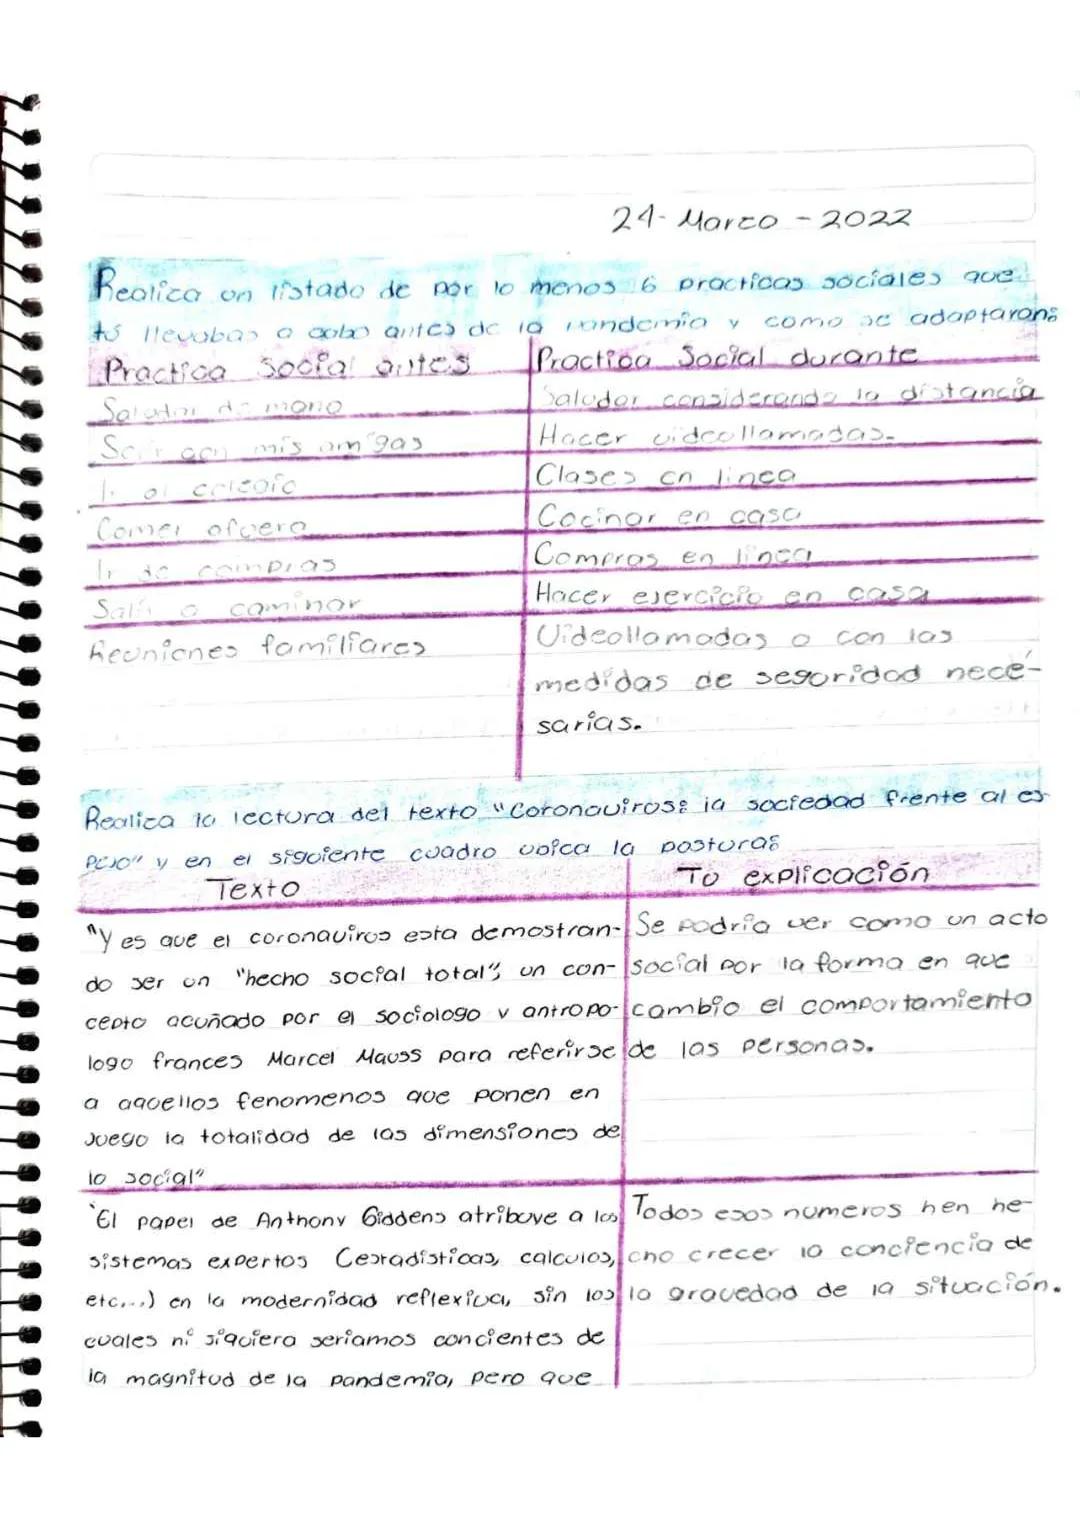 24- Marzo - 2022
Realiza un listado de por lo menos 6 practicas sociales que
tú llevabas a cabo antes de la pandemia y como se adaptaron:
Practica Social antes | Practica Social durante
Saludar de mano | Saludar considerando la distancia
Salir con mis amigas | Hacer videollamadas.
Ir al colegio | Clases en linea
Comer afuera | Cocinar en casa
Ir de compras | Compras en linea
Salir a caminar | Hacer ejercicio en casa
Reuniones familiares | Videollamadas o con las
medidas de seguridad nece-
sarias.
Realiza la lectura del texto "Coronavirus: la sociedad frente al es-
pejo" y en el siguiente cuadro ubica la posturas
Texto | Tu explicación
"Y es que el coronavirus esta demostran- | Se podria ver como un acto
do ser un "hecho social total", un con- | social por la forma en que
cepto acuñado por el sociologo y antropo- | cambio el comportamiento
logo frances Marcel Mauss para referirse | de las personas.
a aquellos fenomenos que ponen en
juego la totalidad de las dimensiones de
lo social"
"El papel de Anthony Giddens atribuye a los | Todos esos numeros hen he-
sistemas expertos (estradisticas, calculos, | cho crecer la conciencia de
etc...) en la modernidad reflexiva, sin los | la gravedad de la situación.
cuales ni siquiera seriamos concientes de
la magnitud de la pandemia, pero que